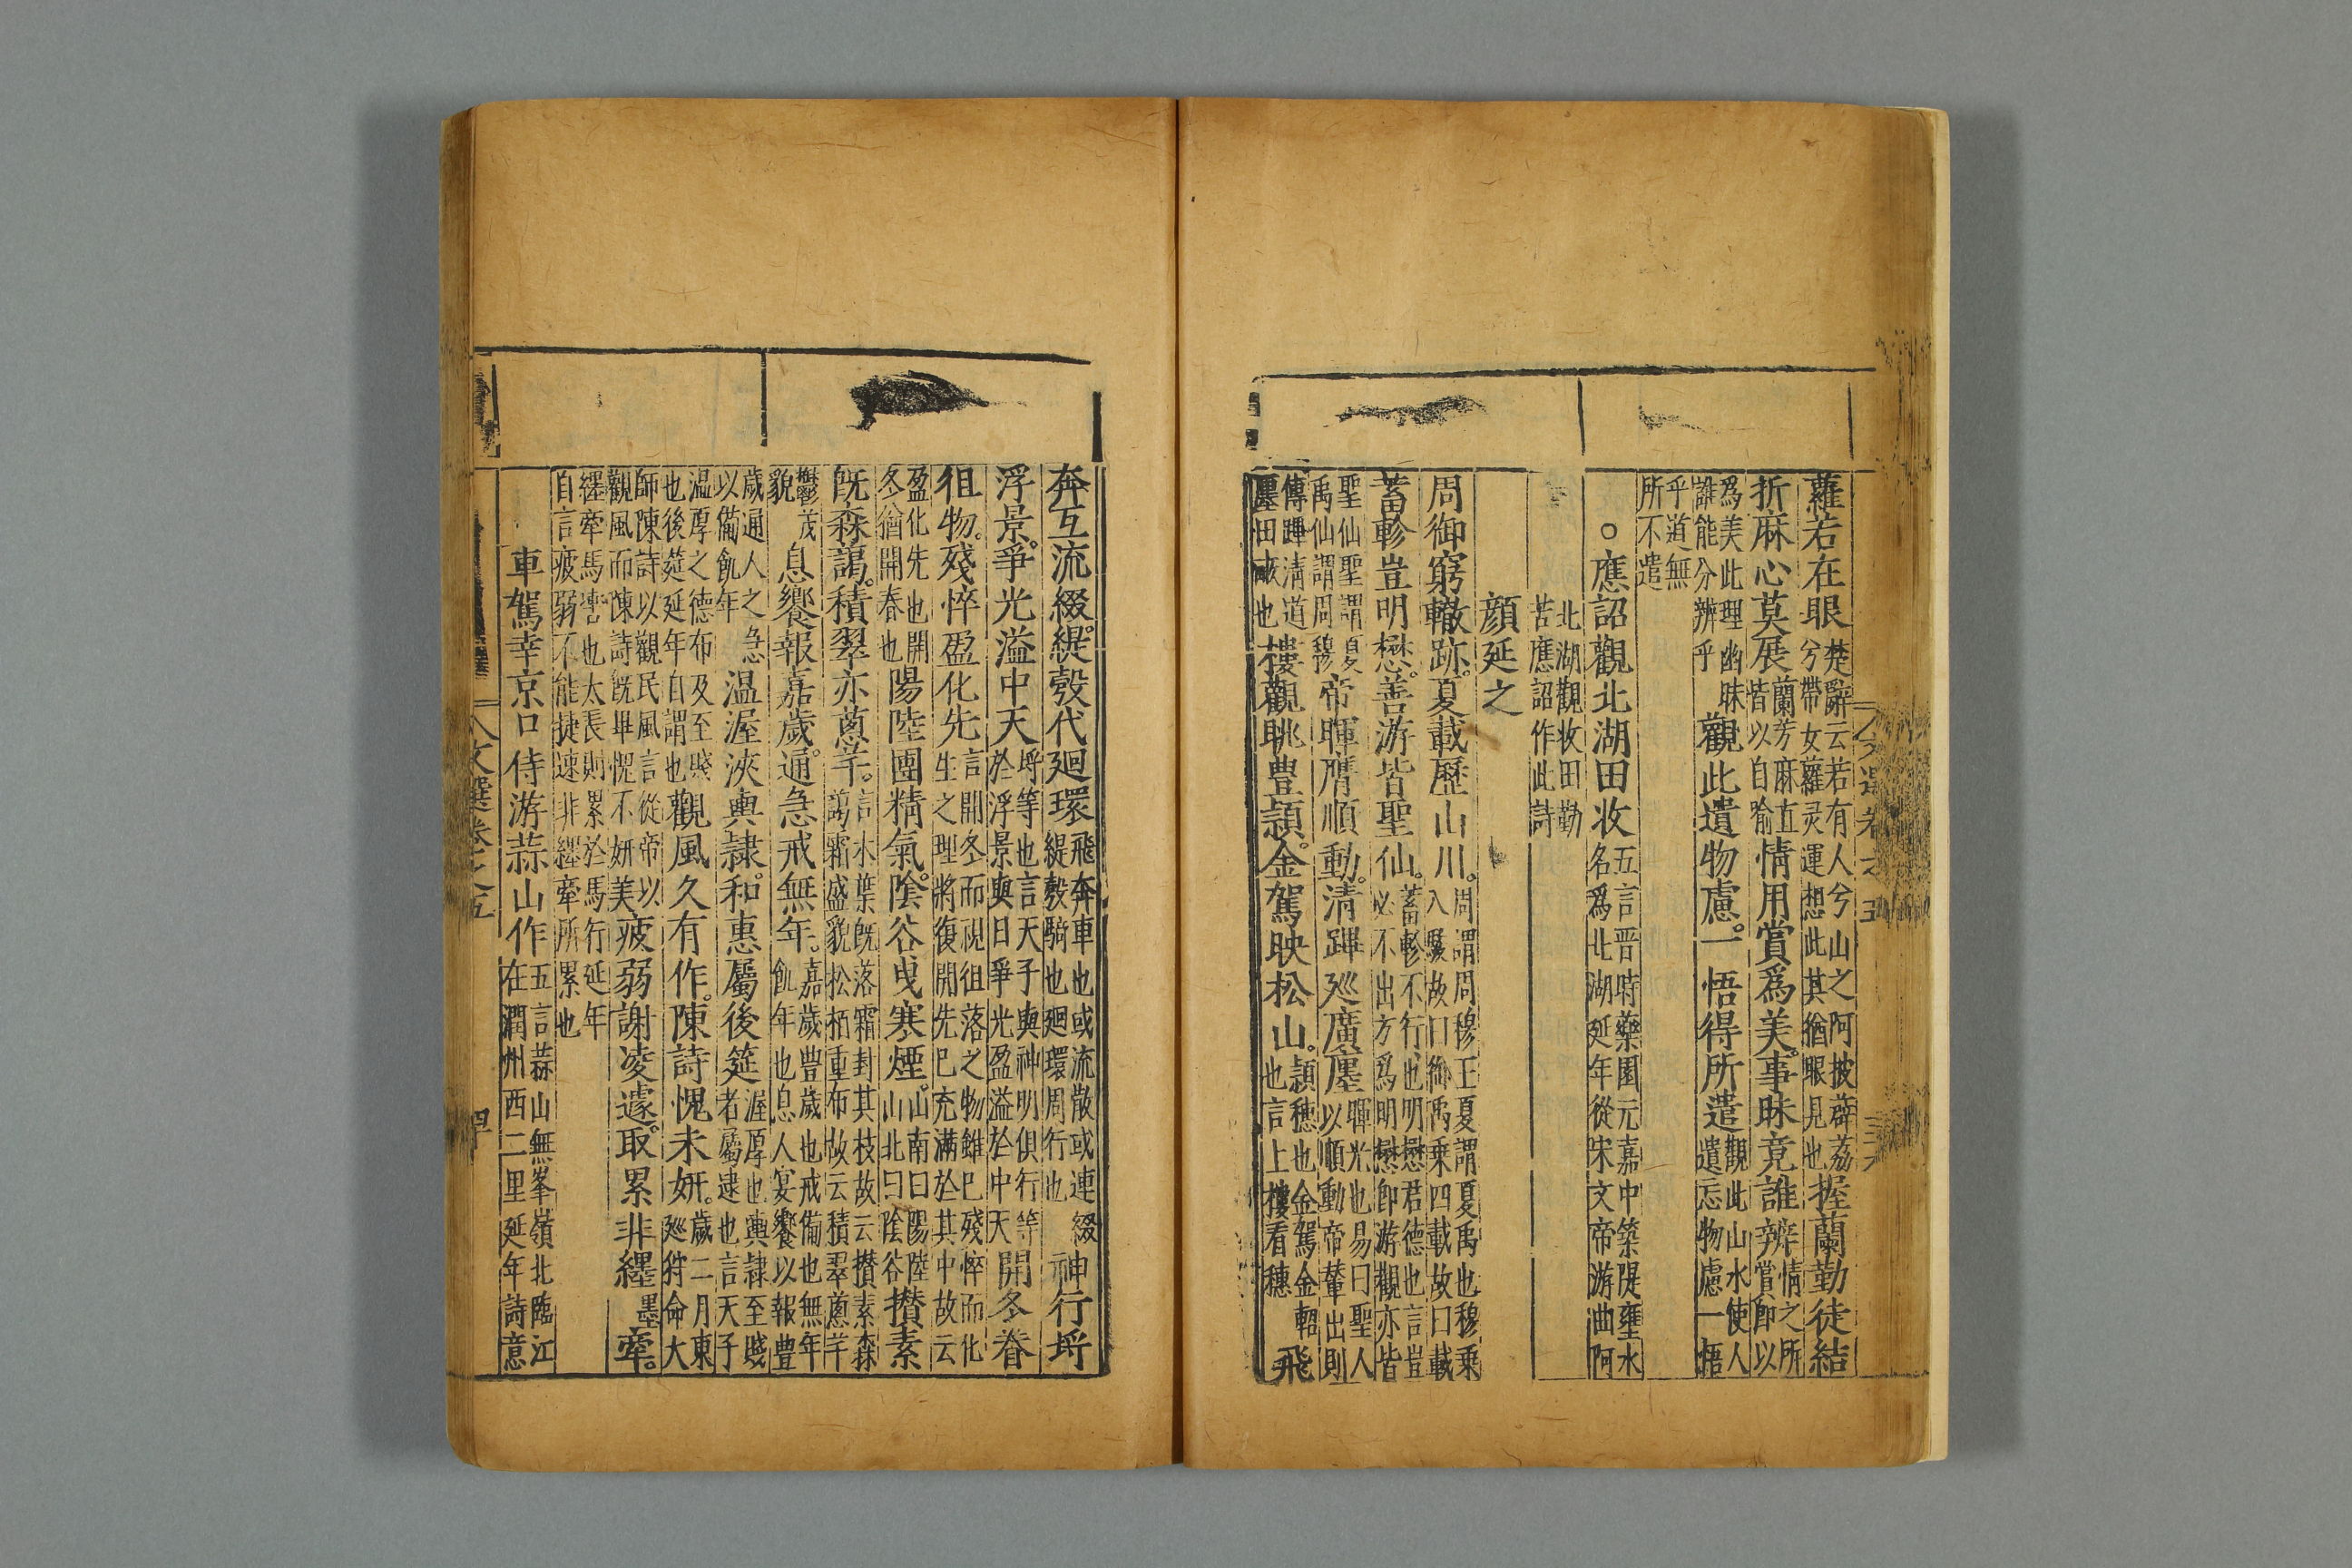 蘿若在眼楚辭云若有人兮山之阿披薜荔兮帶女蘿灵運想此其猶眼見也握蘭勤徒結
折麻心莫展蘭芳麻直皆以自喻情用賞爲美。事昧竟誰辨情之所賞即以
爲美此理幽昧誰能分辨乎觀此遺物慮。一悟得所遣觀此山水使人遺忘物慮一悟
乎道無所不遣
○應詔觀北湖田收五言晋時藥園元嘉中築隄壅水名爲北湖延年從宋文帝游曲阿
北湖觀收田勤苦應詔作此詩
顔延之
周御窮轍跡。夏載歷山川。周謂周穆王夏謂夏禹也穆乘八駿故曰御禹乘四載故曰載
蓄軫豈明懋。善游皆聖仙。蓄軫不行也明懋君德也言豈必不出方爲明懋即游觀亦皆
聖仙聖謂夏禹仙謂周穆帝暉膺順動。清蹕廵廣廛暉光也易曰聖人以順動帝輦出則
傳蹕清道廛田畝也樓觀眺豊頴。金駕映松山。頴穗也金駕金軺也言上樓看穗飛
奔互流綴。緹彀代廻環飛奔車也或流散或連綴緹彀騎也廻環周行也神行埒
浮景。爭光溢中天埒等也言天子與神明俱行等於浮景與日爭光盈溢於中天開冬眷
徂物。殘悴盈化先言開冬而視徂落之物雖已殘悴而化生之理將復開先已充滿於其中故云
盈化先也開冬猶開春也陽陸團精氣。陰谷曳寒煙。山南曰陽陸山北曰陰谷攅素
旣森藹。積翠亦蔥芊。言木葉旣落霜封其枝故云攅素森藹霜盛貌松栢重布故云積翠蔥芊
鬱茂貌息饗報嘉歲。通急戒無年。嘉歲豊歲也戒備也無年飢年也息人宴饗以報豊
歲通人之急以備飢年温渥浹輿隷。和惠屬後筵渥厚也輿隷至賤者屬逮也言天子
温厚之德布及至賤也後筵延年自謂也觀風久有作。陳詩愧未妍。歲二月東廵狩命大
師陳詩以觀民風言從帝以觀風而陳詩旣畢愧不妍美疲弱謝凌遽。取累非纆墨牽。
纆牽馬轡也太長則累於馬行延年自言疲弱不能捷速非纆牽所累也
車駕幸京口侍游蒜山作五言蒜山無峯嶺北臨江在潤州西二里延年詩意